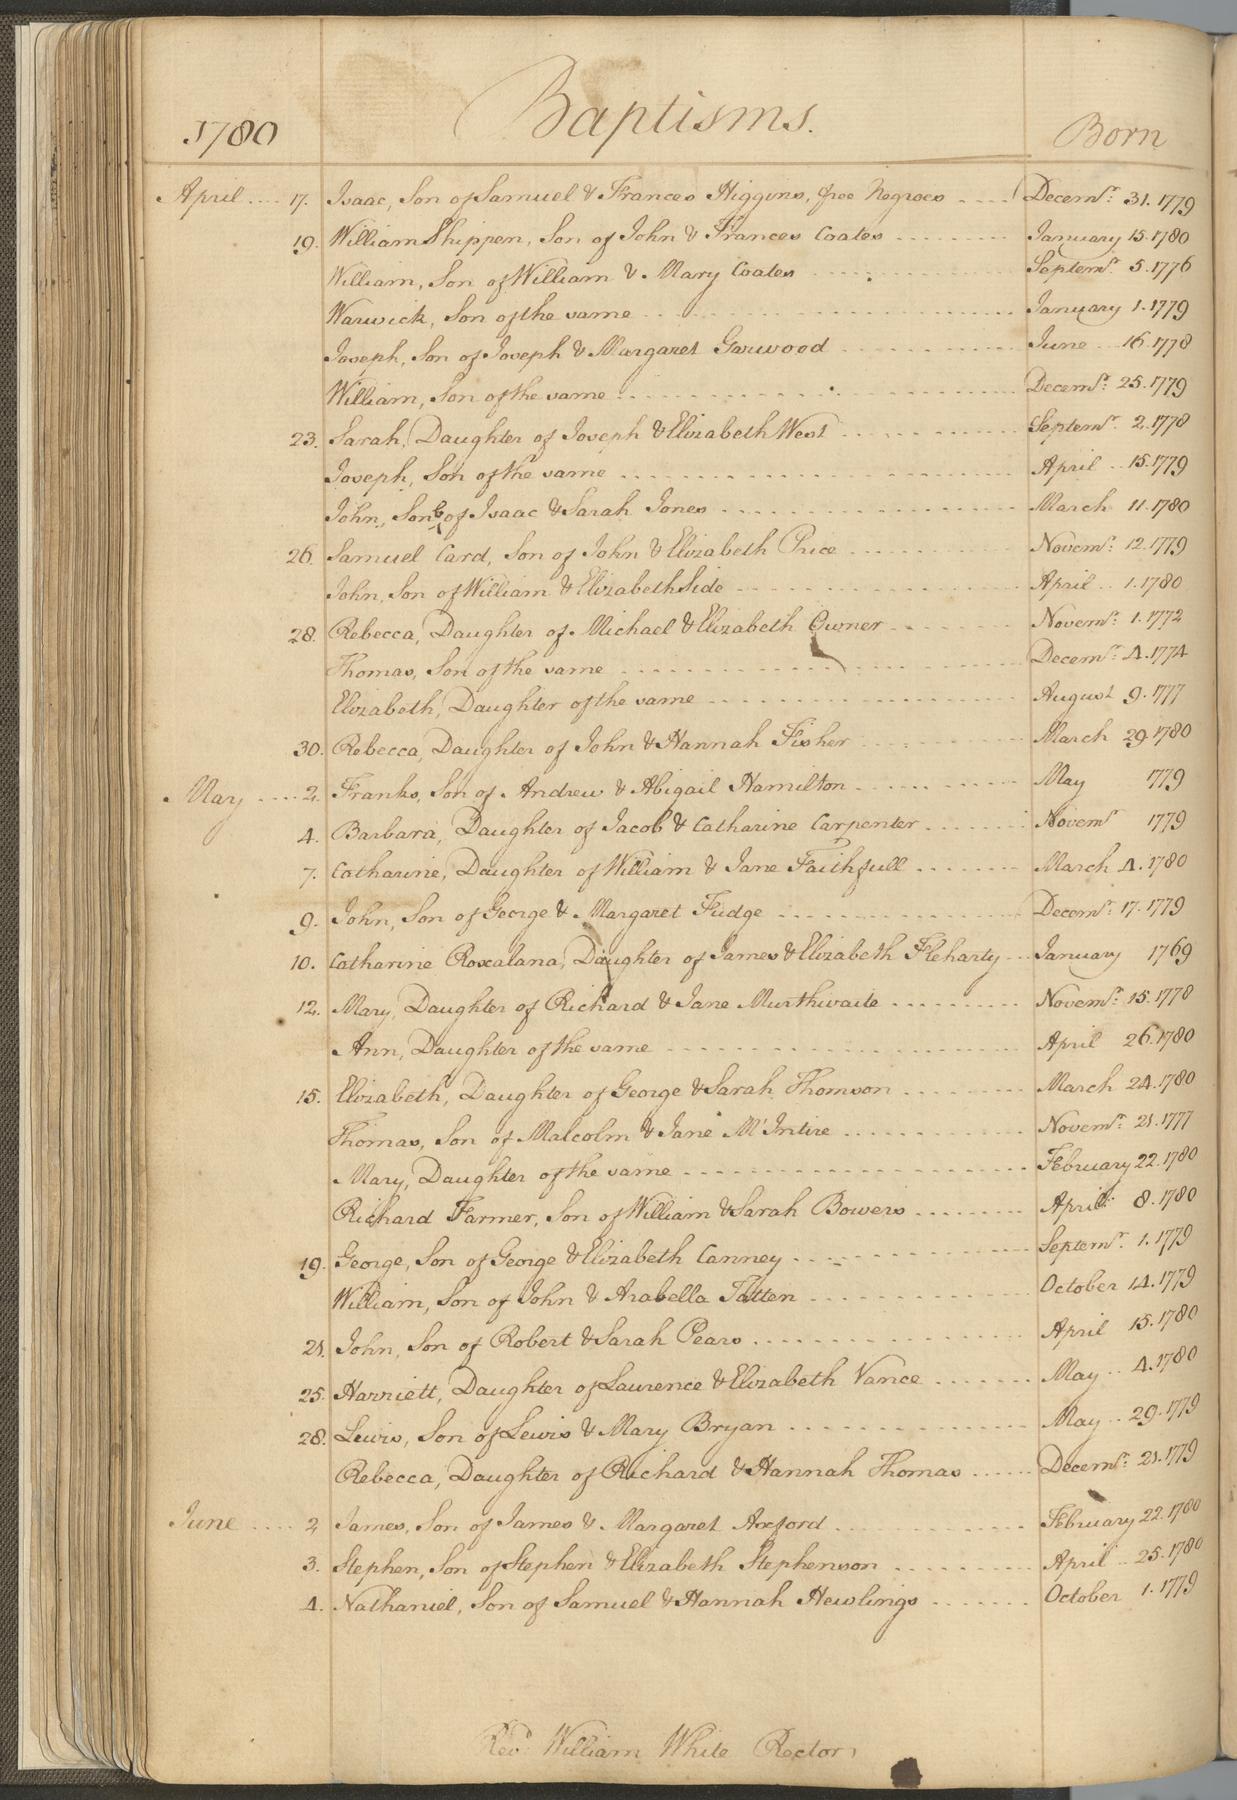 1780 Baptisms. Born
April .... 17. Isaac, Son of Samuel & Frances Higgins, free Negroes .... Decemr: 31. 1779
19. William Shippen, Son of John & Frances Coates ........ January 15. 1780
William, Son of William & Mary Coates ........ Septemr. 5. 1776
Warwick, Son of the same ........ January 1. 1779
Joseph, Son of Joseph & Margaret Garwood ........ June 16. 1778
William, Son of the same ........ Decemr: 25. 1779
23. Sarah, Daughter of Joseph & Elizabeth West ........ Septemr. 2. 1778
Joseph, Son of the same ........ April 15. 1779
John, Son of Isaac & Sarah Jones ........ March 11. 1780
26. Samuel Card, Son of John & Elizabeth Price ........ Novemr: 12. 1779
John, Son of William & Elizabeth Side ........ April 1. 1780
28. Rebecca, Daughter of Michael & Elizabeth Owner ........ Novemr: 1. 1772
Thomas, Son of the same ........ Decemr: 4. 1774
Elizabeth, Daughter of the same ........ August 9. 1777
30. Rebecca, Daughter of John & Hannah Fisher ........ March 29. 1780
May .... 2. Franks, Son of Andrew & Abigail Hamilton ........ May 1779
4. Barbara, Daughter of Jacob & Catharine Carpenter ........ Novemr 1779
7. Catharine, Daughter of William & Jane Faithfull ........ March 4. 1780
9. John, Son of George & Margaret Fudge ........ Decemr: 17. 1779
10. Catharine Roxalana, Daughter of James & Elizabeth Fleharty ... January 1769
12. Mary, Daughter of Richard & Jane Murthwaite ........ Novemr: 15. 1778
Ann, Daughter of the same ........ April 26. 1780
15. Elizabeth, Daughter of George & Sarah Thomson ........ March 24. 1780
Thomas, Son of Malcolm & Jane M'Intire ........ Novemr: 21. 1777
Mary, Daughter of the same ........ February 22. 1780
Richard Farmer, Son of William & Sarah Bowers ........ April 8. 1780
19. George, Son of George & Elizabeth Canney ........ Septemr. 1. 1779
William, Son of John & Arabella Tatten ........ October 14. 1779
21. John, Son of Robert & Sarah Pears ........ April 15. 1780
25. Harriett, Daughter of Laurence & Elizabeth Vance ........ May 4. 1780
28. Lewis, Son of Lewis & Mary Bryan ........ May 29. 1779
Rebecca, Daughter of Richard & Hannah Thomas ...... Decemr: 21. 1779
June .... 2. James, Son of James & Margaret Axford ........ February 22. 1780
3. Stephen, Son of Stephen & Elizabeth Stephenson ........ April 25. 1780
4. Nathaniel, Son of Samuel & Hannah Hewlings ....... October 1. 1779
Revd. William White Rector